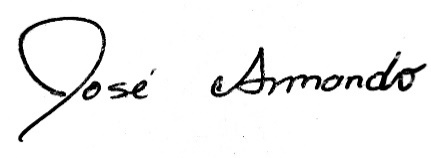 José Armando